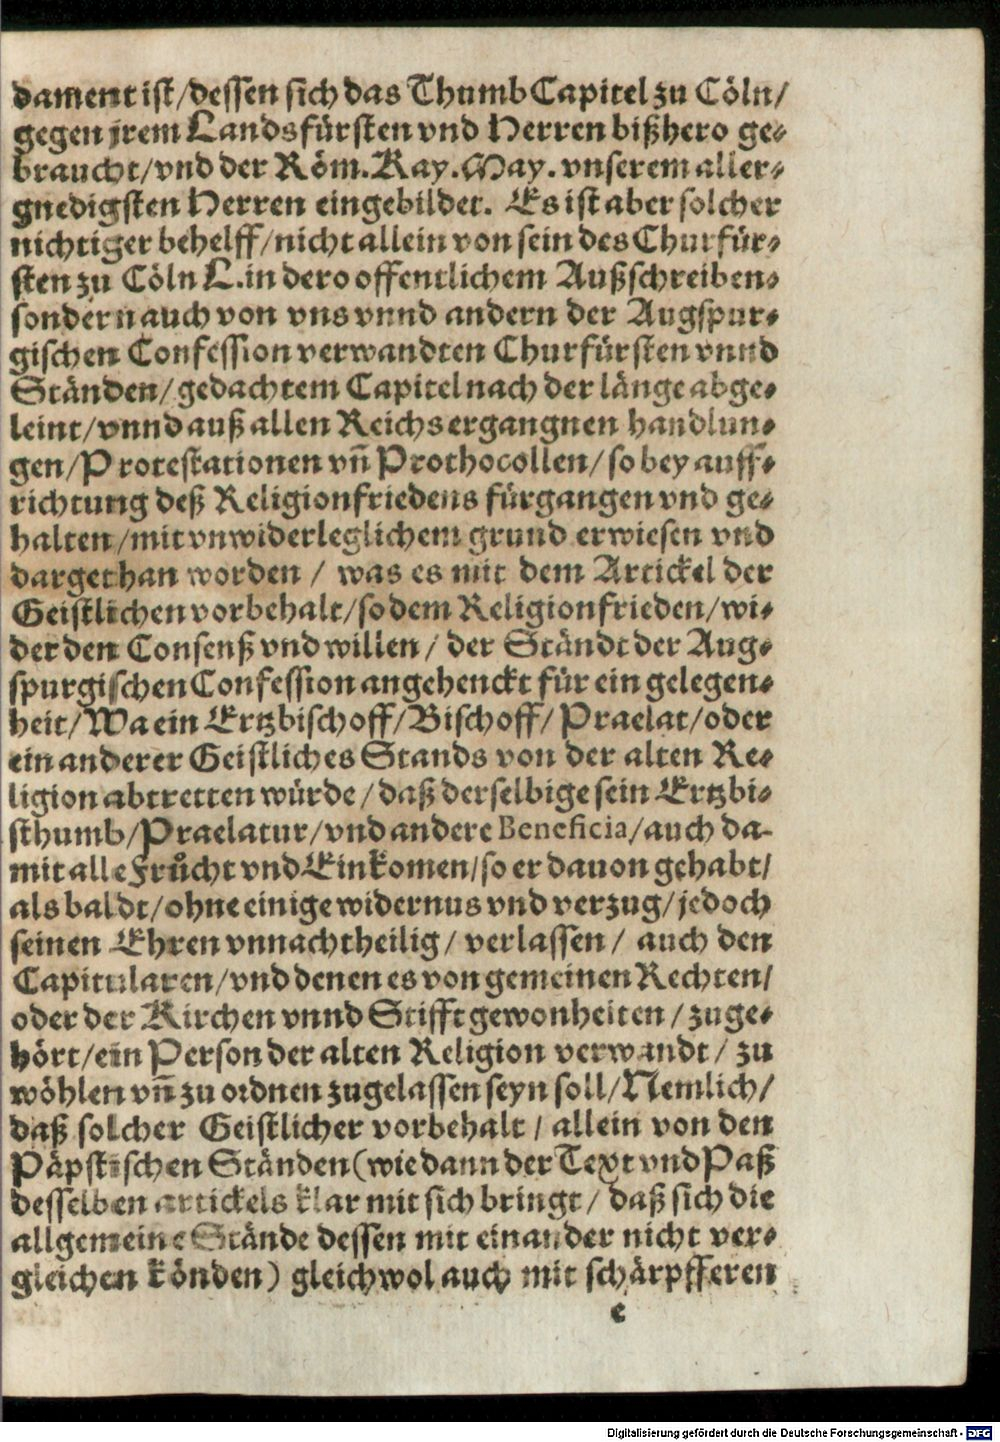 dament ist/dessen sich das Thumb Capitel zu Cöln/
gegen jrem Landsfürsten vnd Herren bißhero ge-
braucht/vnd der Röm. Kay. May. vnserem aller-
gnedigsten Herren eingebildet. Es ist aber solcher
nichtiger behelff/nicht allein von sein des Churfür-
sten zu Cöln L. in dero offentlichem Außschreiben-
sondern auch von vns vnnd andern der Augspur-
gischen Confession verwandten Churfürsten vnnd
Ständen/gedachtem Capitel nach der länge abge-
leint/vnnd auß allen Reichs ergangnen handlun-
gen/Protestationen vñ Prothocollen/so bey auff-
richtung deß Religionfriedens fürgangen vnd ge-
halten/mit vnwiderleglichem grund erwiesen vnd
dargethan worden / was es mit dem Artickel der
Geistlichen vorbehalt/so dem Religionfrieden/wi-
der den Consenß vnd willen/ der Ständt der Aug-
spurgischen Confession angehenckt für ein gelegen-
heit/Wa ein Ertzbischoff/Bischoff/Praelat/oder
ein anderer Geistliches Stands von der alten Re-
ligion abtretten würde/daß derselbige sein Ertzbi-
sthumb/Praelatur/vnd andere Beneficia/auch da-
mit alle Frücht vnd Einkomen/so er dauon gehabt/
als baldt/ohne einige widernus vnd verzug/jedoch
seinen Ehren vnnachtheilig/ verlassen/ auch den
Capitularen/vnd denen es von gemeinen Rechten/
oder der Kirchen vnnd Stifft gewonheiten/zuge-
hört/ein Person der alten Religion verwandt/ zu
wöhlen vñ zu ordnen zugelassen seyn soll/Nemlich/
daß solcher Geistlicher vorbehalt / allein von den
Päpstischen Ständen (wie dann der Text vnd Paß
desselben artickels klar mit sich bringt/ daß sich die
allgemeine Stände dessen mit einander nicht ver-
gleichen könden) gleichwol auch mit schärpfferen
e
Digitalisierung gefördert durch die Deutsche Forschungsgemeinschaft - DFG